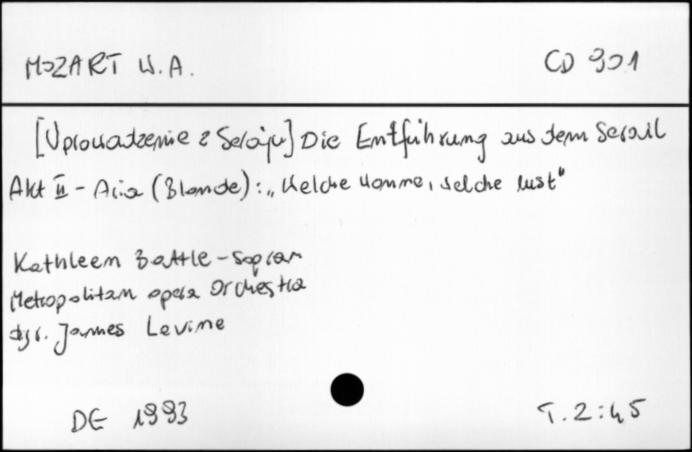 MOZART W.A.
CD 901
[Uprowadzenie z Seraju] Die Entführung aus dem Serail
Akt II - Aria (Blonde): „Welche Wonne, welche Lust"
Kathleen Battle - sopran
Metropolitan opera Orchestra
dyr. James Levine
DE 1993
T. 2:45